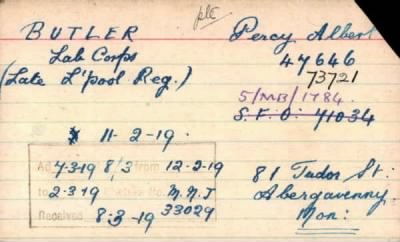 pte
BUTLER Percy Albert
Lab Corps 47646
(Late L'pool Reg.) 73721
5/MB/1784.
S.F.O. 41034
11-2-19.
Ad 4-3-19 8/3 from 12-2-19
to 2-3-19 M.N.J
Received 8-3-19 33029
81 Tudor St:
Abergavenny.
Mon: